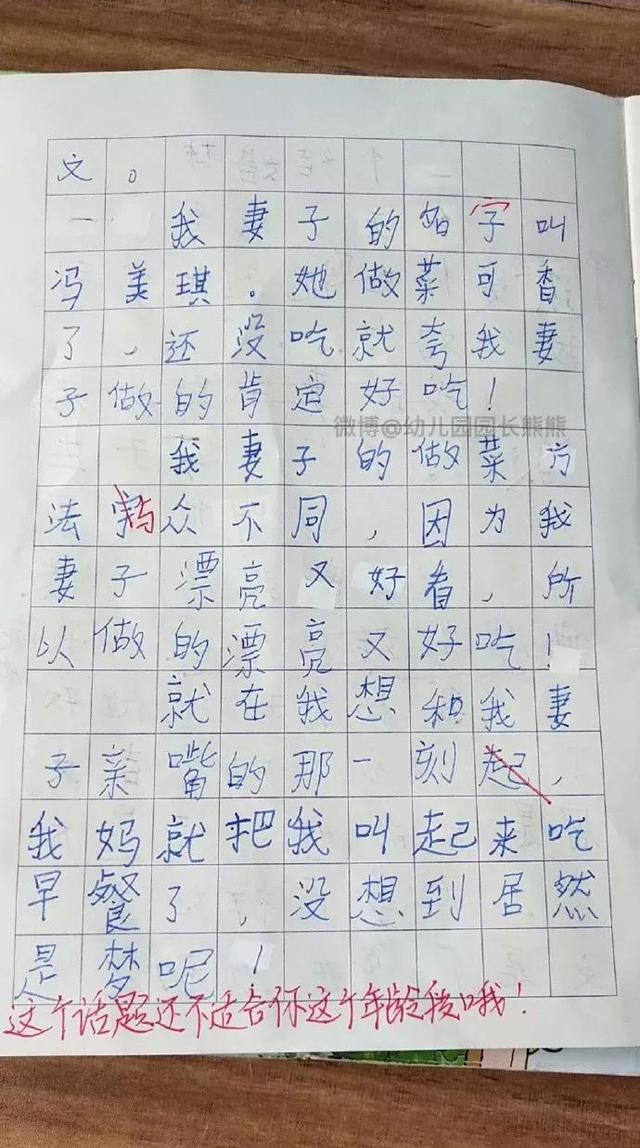 文。
一 我妻子的名字叫
冯美琪。她做菜可香
了，还没吃就夸我妻
子做的肯定好吃！
微博@幼儿园园长熊熊
我妻子的做菜方
法与众不同，因为我
妻子漂亮又好看，所
以做的漂亮又好吃！
就在我想和我妻
子亲嘴的那一刻起，
我妈就把我叫起来吃
早餐了，没想到居然
是梦呢！
这个话题还不适合你这个年龄段哦！